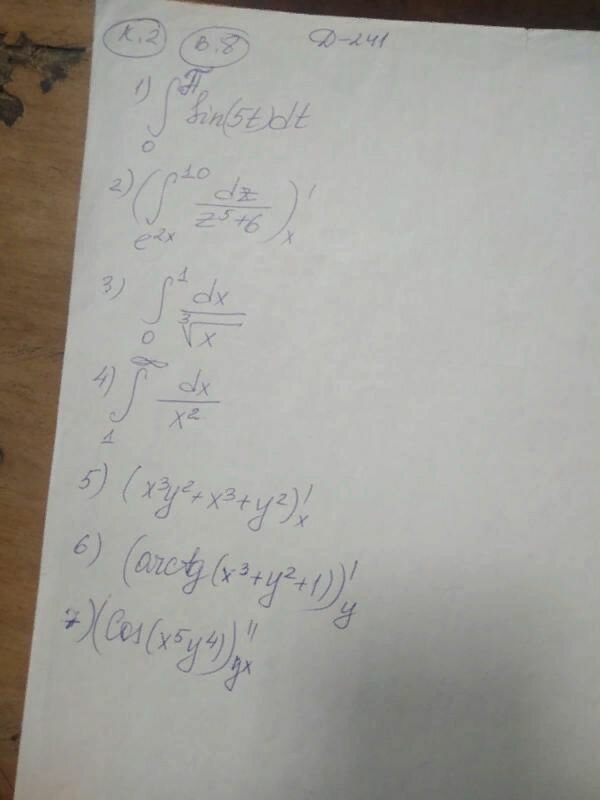 К.2 В.8 Д-241
1) ∫₀^π sin(5t)dt
2) (∫_{e^{2x}}^{10} dz/(z⁵+6))'ₓ
3) ∫₀¹ dx/∛x
4) ∫₁^∞ dx/x²
5) (x³y²+x³+y²)'ₓ
6) (arctg(x³+y²+1))'_y
7) (Cos(x⁵y⁴))''_{yx}